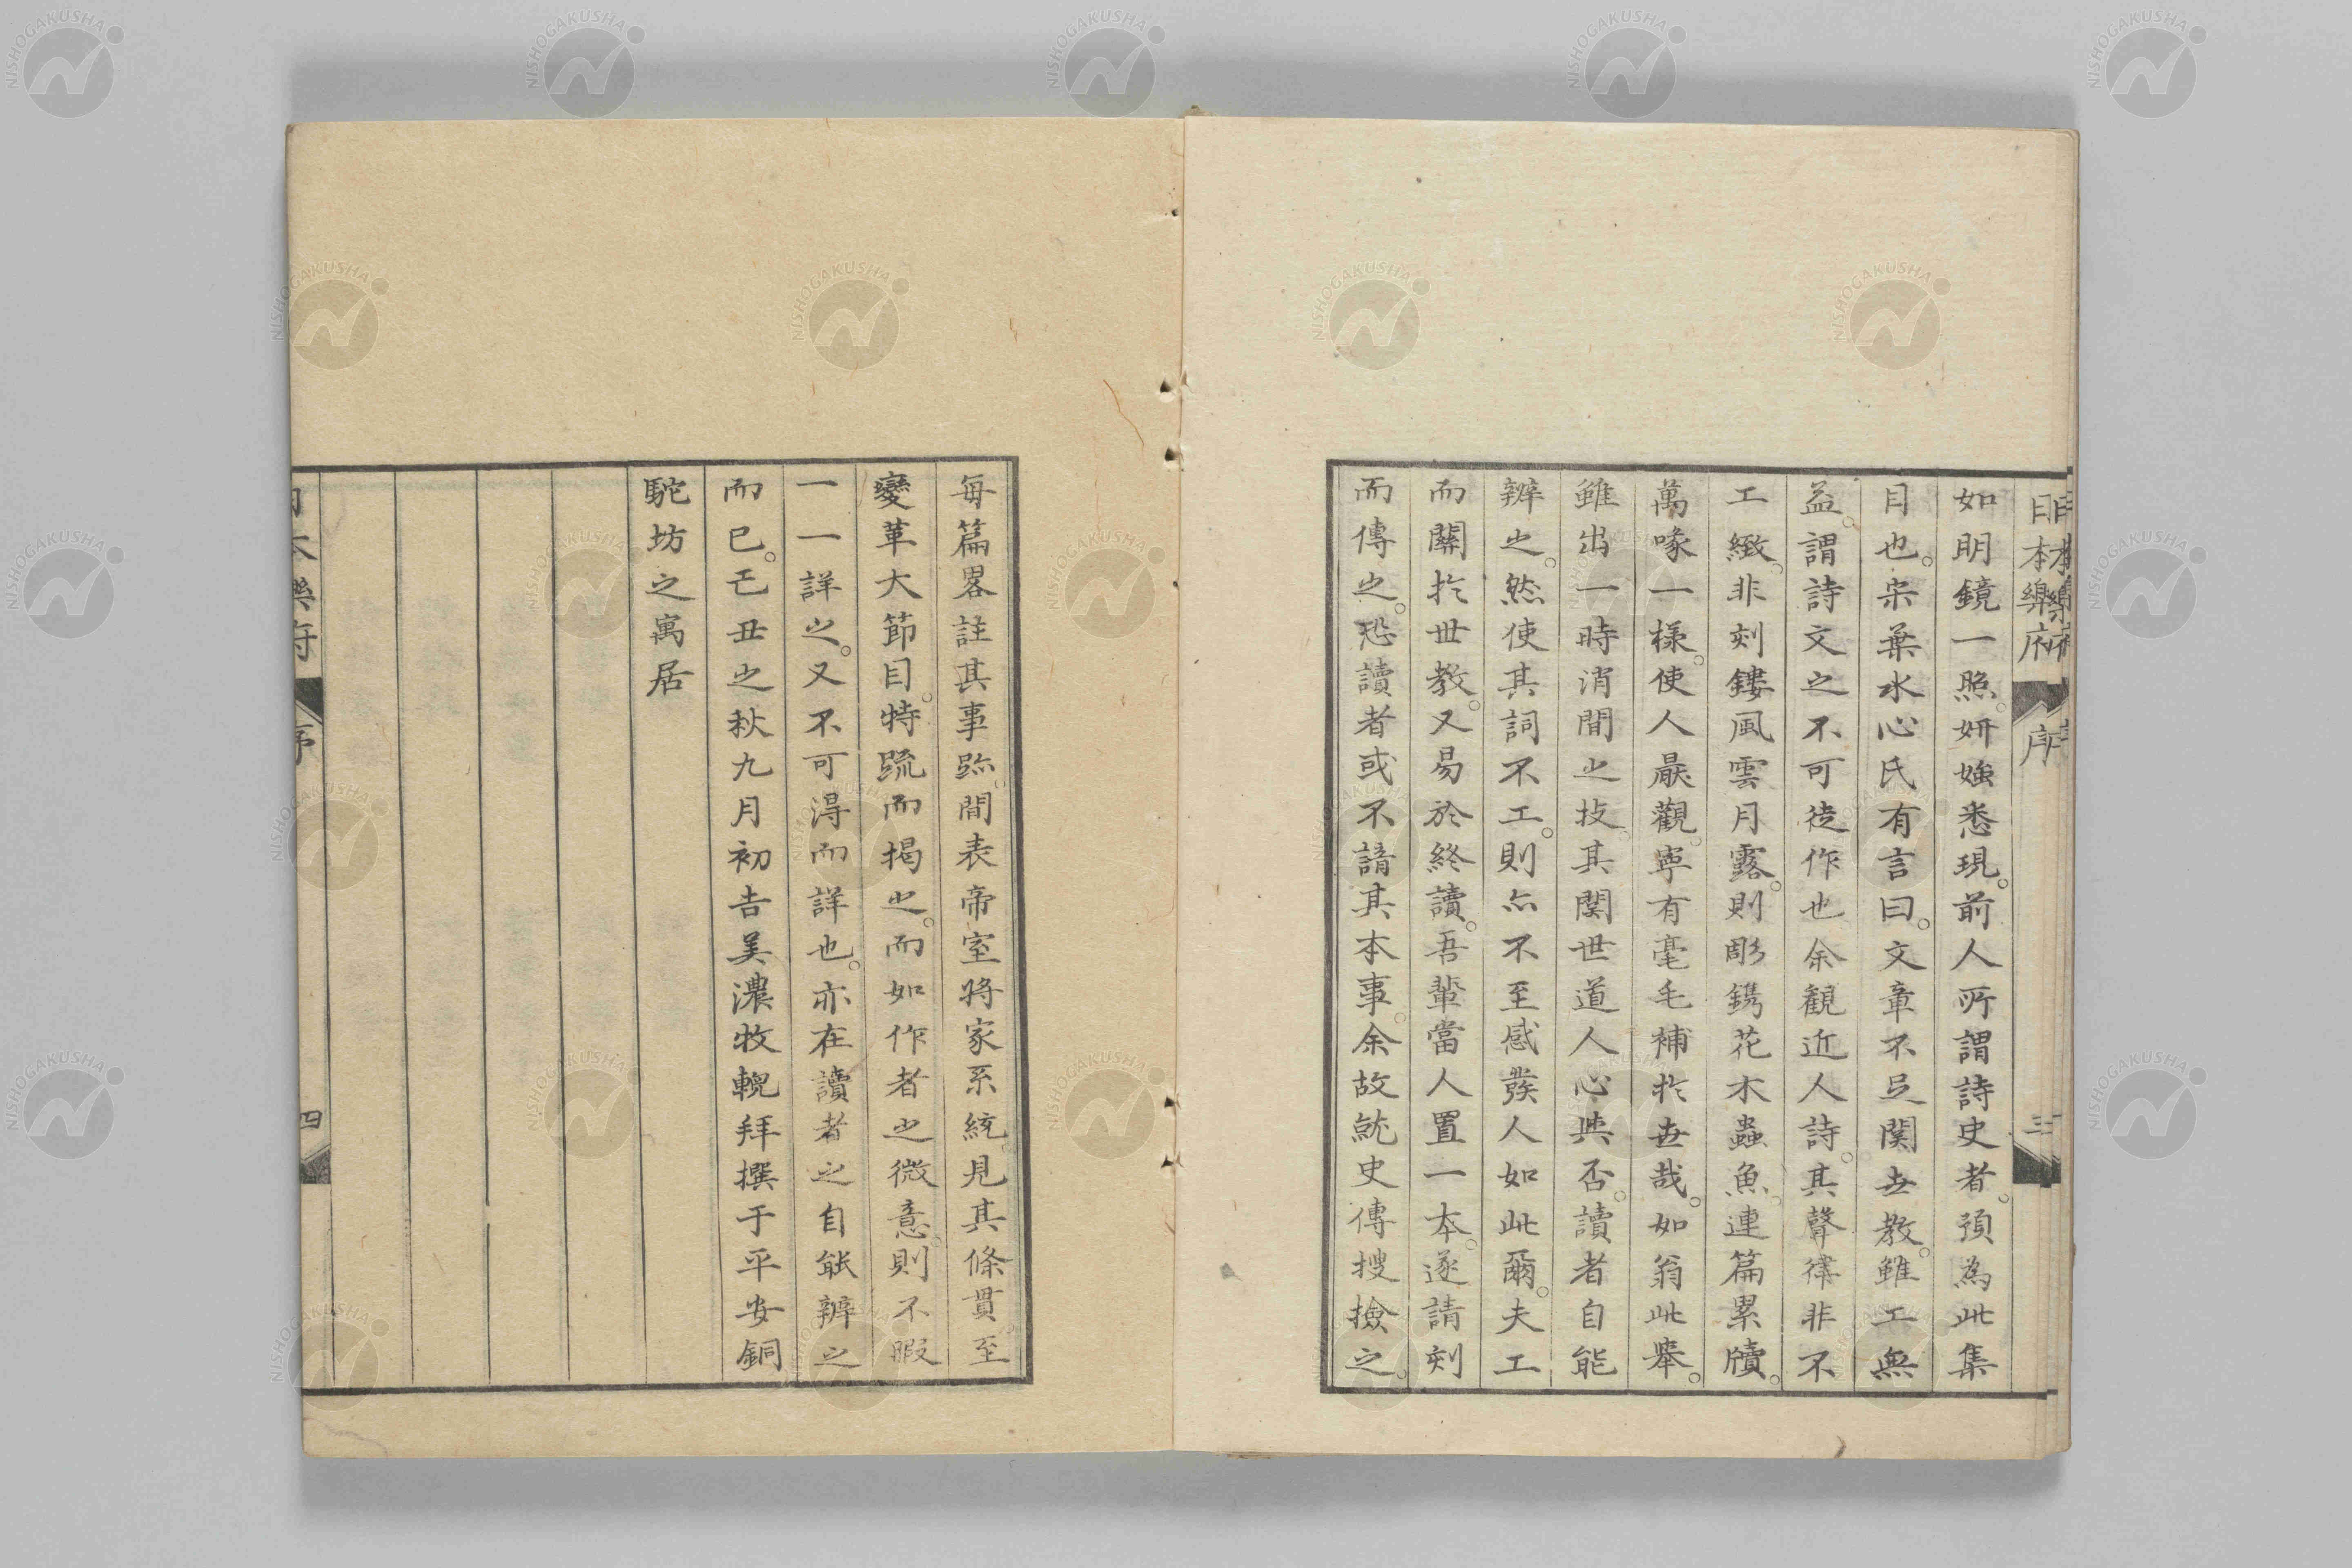 日本樂府
序
三
如明鏡一照。妍媸悉現。前人所謂詩史者。預為此集
目也。宋葉水心氏有言曰。文章不足関世教。雖工無
益。謂詩文之不可徒作也余観近人詩。其聲律非不
工緻。非刻鏤風雲月露。則彫鐫花木蟲魚。連篇累牘。
萬喙一樣。使人厭觀。寧有毫毛補於世哉。如翁此舉。
雖出一時消間之技。其関世道人心與否。讀者自能
辨之。然使其詞不工。則亦不至感發人如此爾。夫工
而關於世教。又易於終讀。吾輩當人置一本。遂請刻
而傳之。恐讀者或不諳其本事。余故就史傳搜撿之。
每篇畧註其事跡。間表帝室將家系統。見其條貫。至
變革大節目。特䟽而揭之。而如作者之微意。則不暇
一一詳之。又不可得而詳也。亦在讀者之自能辨之
而已。己丑之秋九月初吉美濃牧輗拜撰于平安銅
駝坊之寓居
日本樂府
序
四
NISHOGAKUSHA